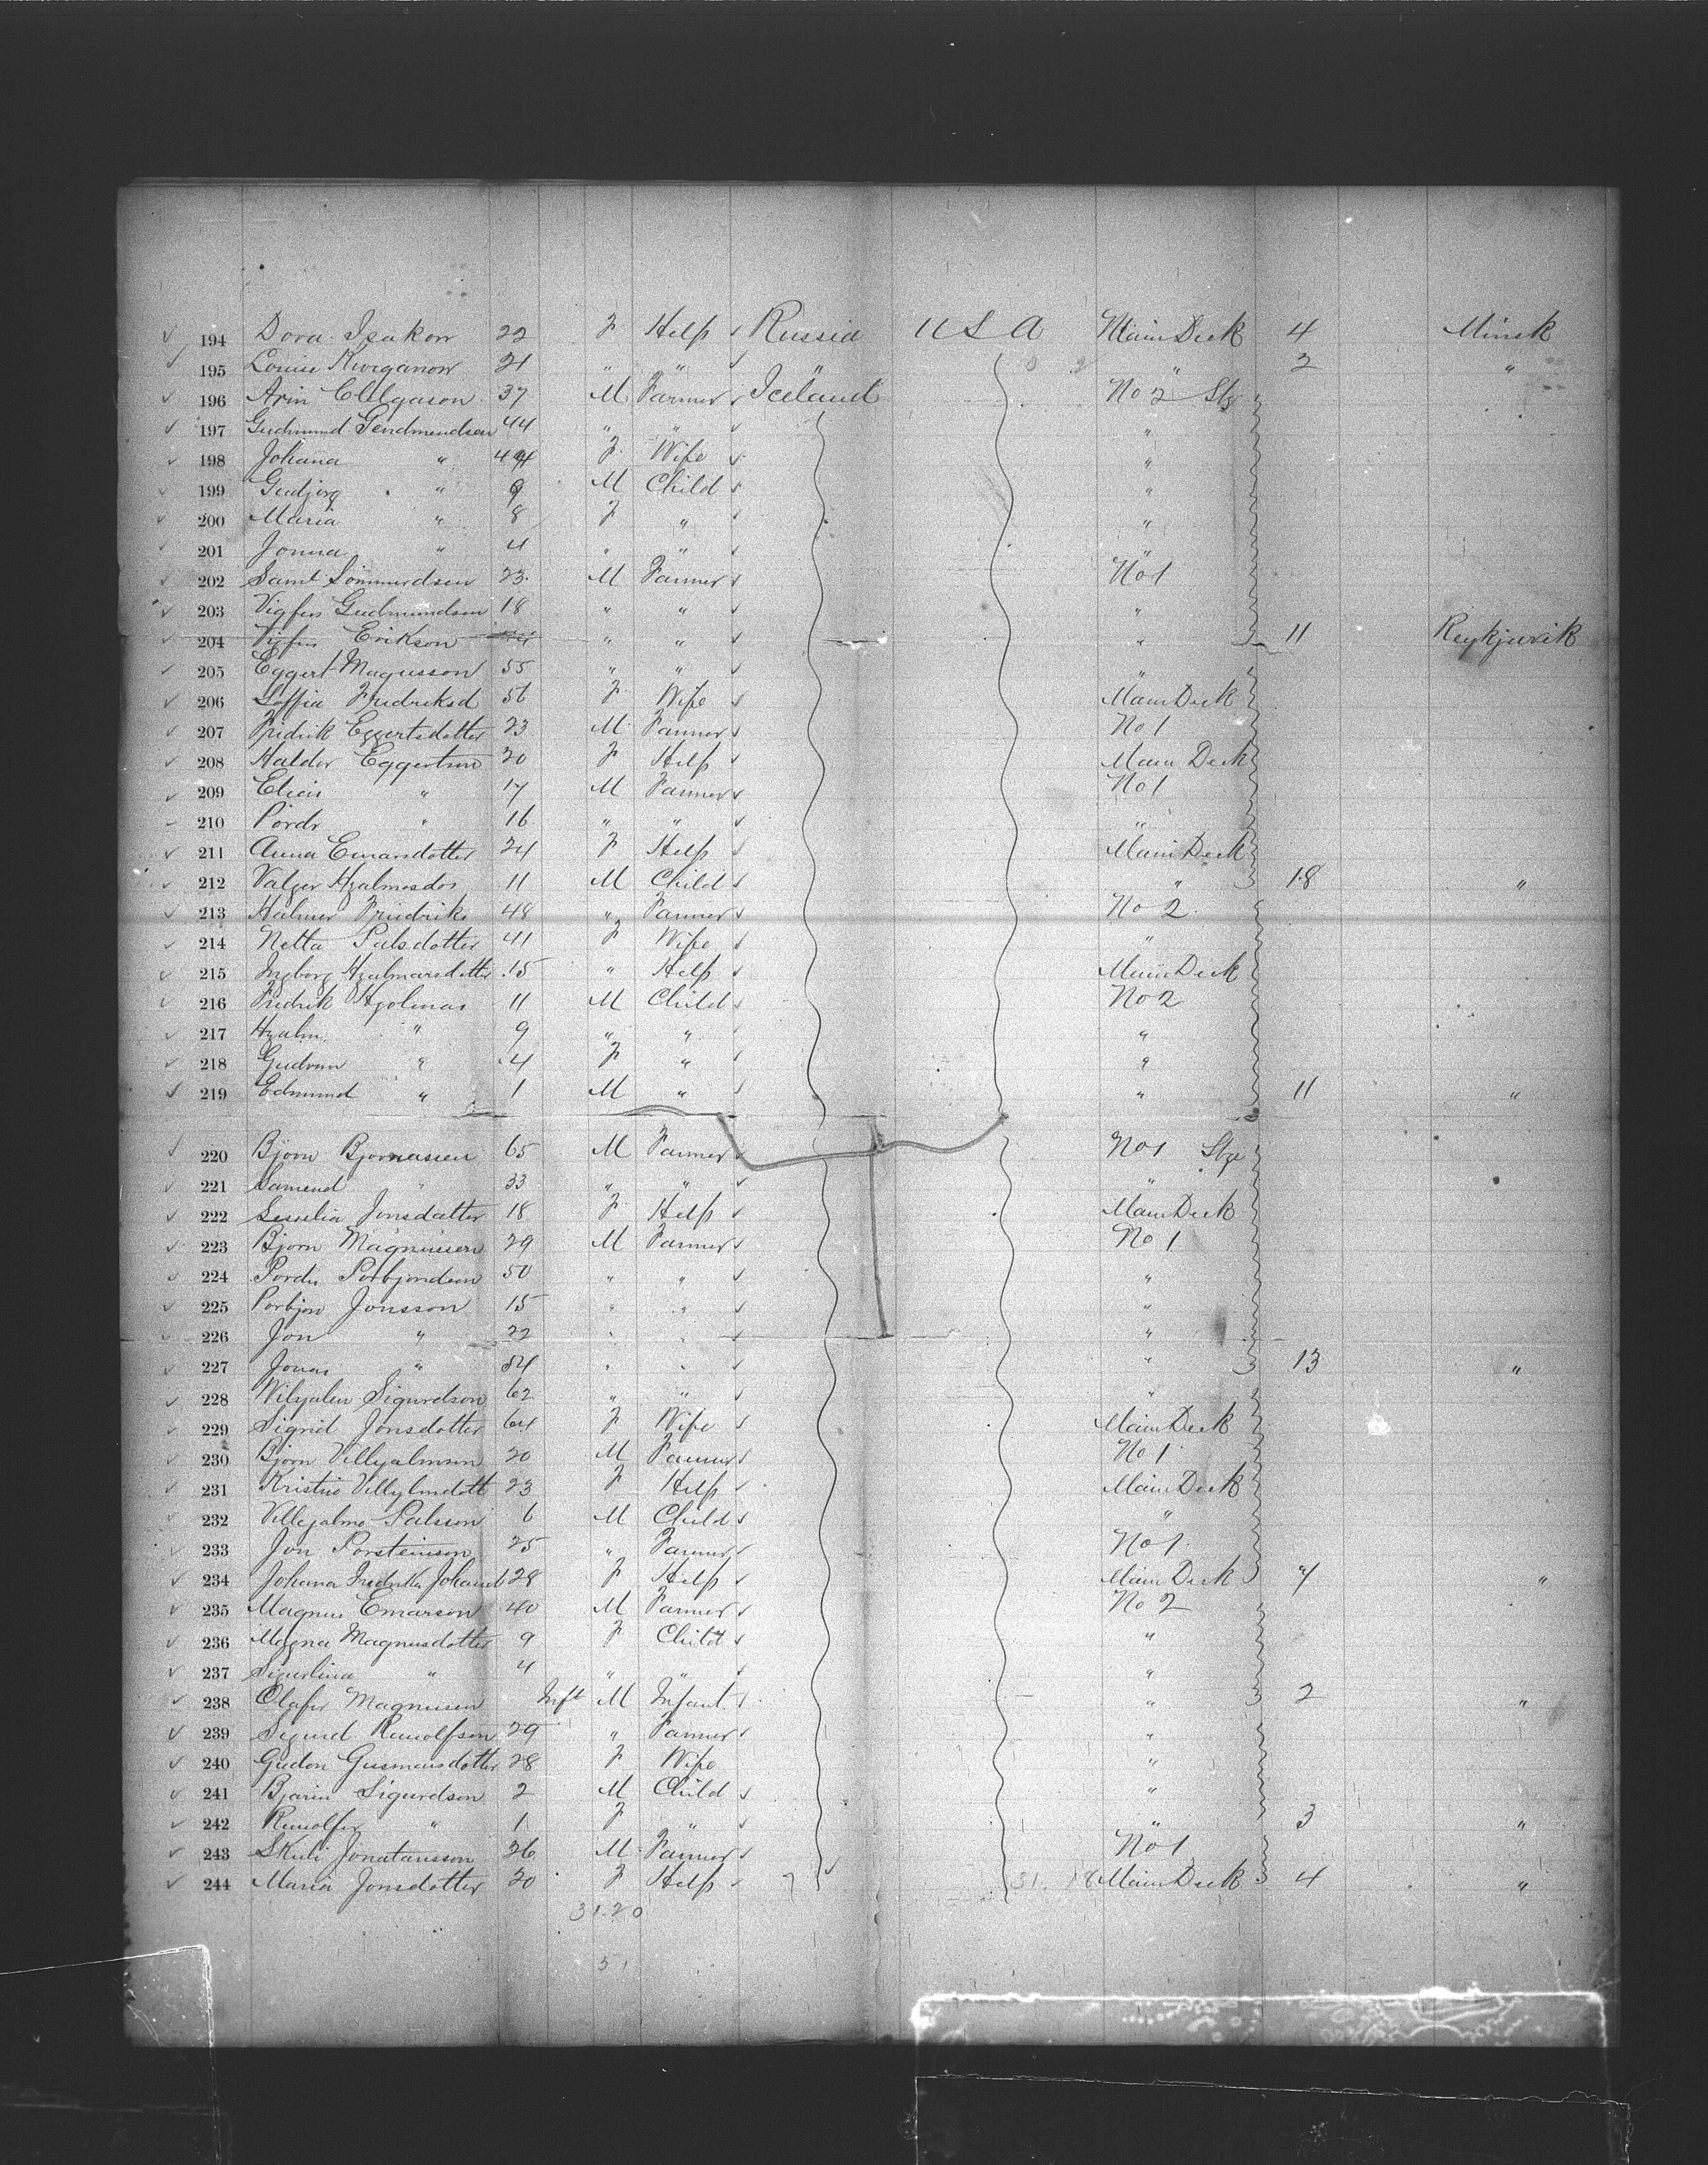 194 Dora Isakow 22 F Help Russia U S A Main Deck 4 Minsk
195 Louise Kurganow 21 " " " " 2 "
196 Arin Helgason 37 M Farmer Iceland No 2 Stg
197 Gudmund Gendmendsen 44 " " "
198 Johana " 44 F Wife "
199 Gudjorg " 9 M Child "
200 Maria " 8 F " "
201 Jonna " 4 " " "
202 Saml 23 M Farmer No 1
203 Vigfus Gudmundson 18 " " "
204 Vigfus Erikson " " " 11 Reykjavik
205 Eggert Magusson 55 " " "
206 Soffia Fredriksd 56 F Wife Main Deck
207 Fridrik Eggertsdotter 23 M Farmer No 1
208 Haldor Eggertson 20 F Help Main Deck
209 Elias " 17 M Farmer No 1
210 Pordr " 16 " " "
211 Anna Emarsdotter 24 F Help Main Deck
212 Valger Hjalmosdor 11 M Child " 18 "
213 Halmer Friedriks 48 " Farmer No 2
214 Netta Palsdotter 41 F Wife "
215 Ingborg Hjalmarsdotter 15 " Help Main Deck
216 Fredrik Hjolmas 11 M Child No 2
217 Hjalm " 9 " " "
218 Gudrun " 4 F " "
219 Edmund " 1 M " " 11 "
220 Bjorn Bjornassen 65 M Farmer No 1 Stge
221 Samend " 33 " " "
222 Sesselia Jonsdatter 18 F Help Main Deck
223 Bjorn Magnussen 29 M Farmer No 1
224 Pordis Porbjondsen 50 " " "
225 Porbjon Jonsson 15 " " "
226 Jon " 22 " " "
227 Jonas " 54 " " " 13 "
228 Wilyalm Sigurdson 62 " " "
229 Sigrid Jonsdotter 64 F Wife Main Deck
230 Bjorn Villyalmson 20 M Farmer No 1
231 Kristin Villylmdott 23 F Help Main Deck
232 Villejalmo Palsson 6 M Child "
233 Jon Porsteinson 25 " Farmer No 1
234 Johana Fredrika Johansd 28 F Help Main Deck 7 "
235 Magnus Emarson 40 M Farmer No 2
236 Magna Magnusdotter 9 F Child "
237 Sigurlina " 4 " " "
238 Olafur Magnusen Inft M Infant " 2 "
239 Sigurd Runolfson 29 " Farmer "
240 Gudon Gusmansdotter 28 F Wife "
241 Bjarin Sigurdson 2 M Child "
242 Runolfur " 1 F " " 3 "
243 Skuli Jonatansson 26 M Farmer No 1
244 Maria Jonsdotter 20 F Help 31. 18 Main Deck 4 "
31.20
51